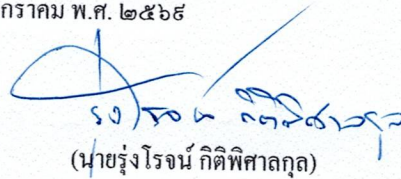 กราคม พ.ศ. ๒๕๖๙
รุ่งโรจน์ กิติพิศาลกุล
(นายรุ่งโรจน์ กิติพิศาลกุล)